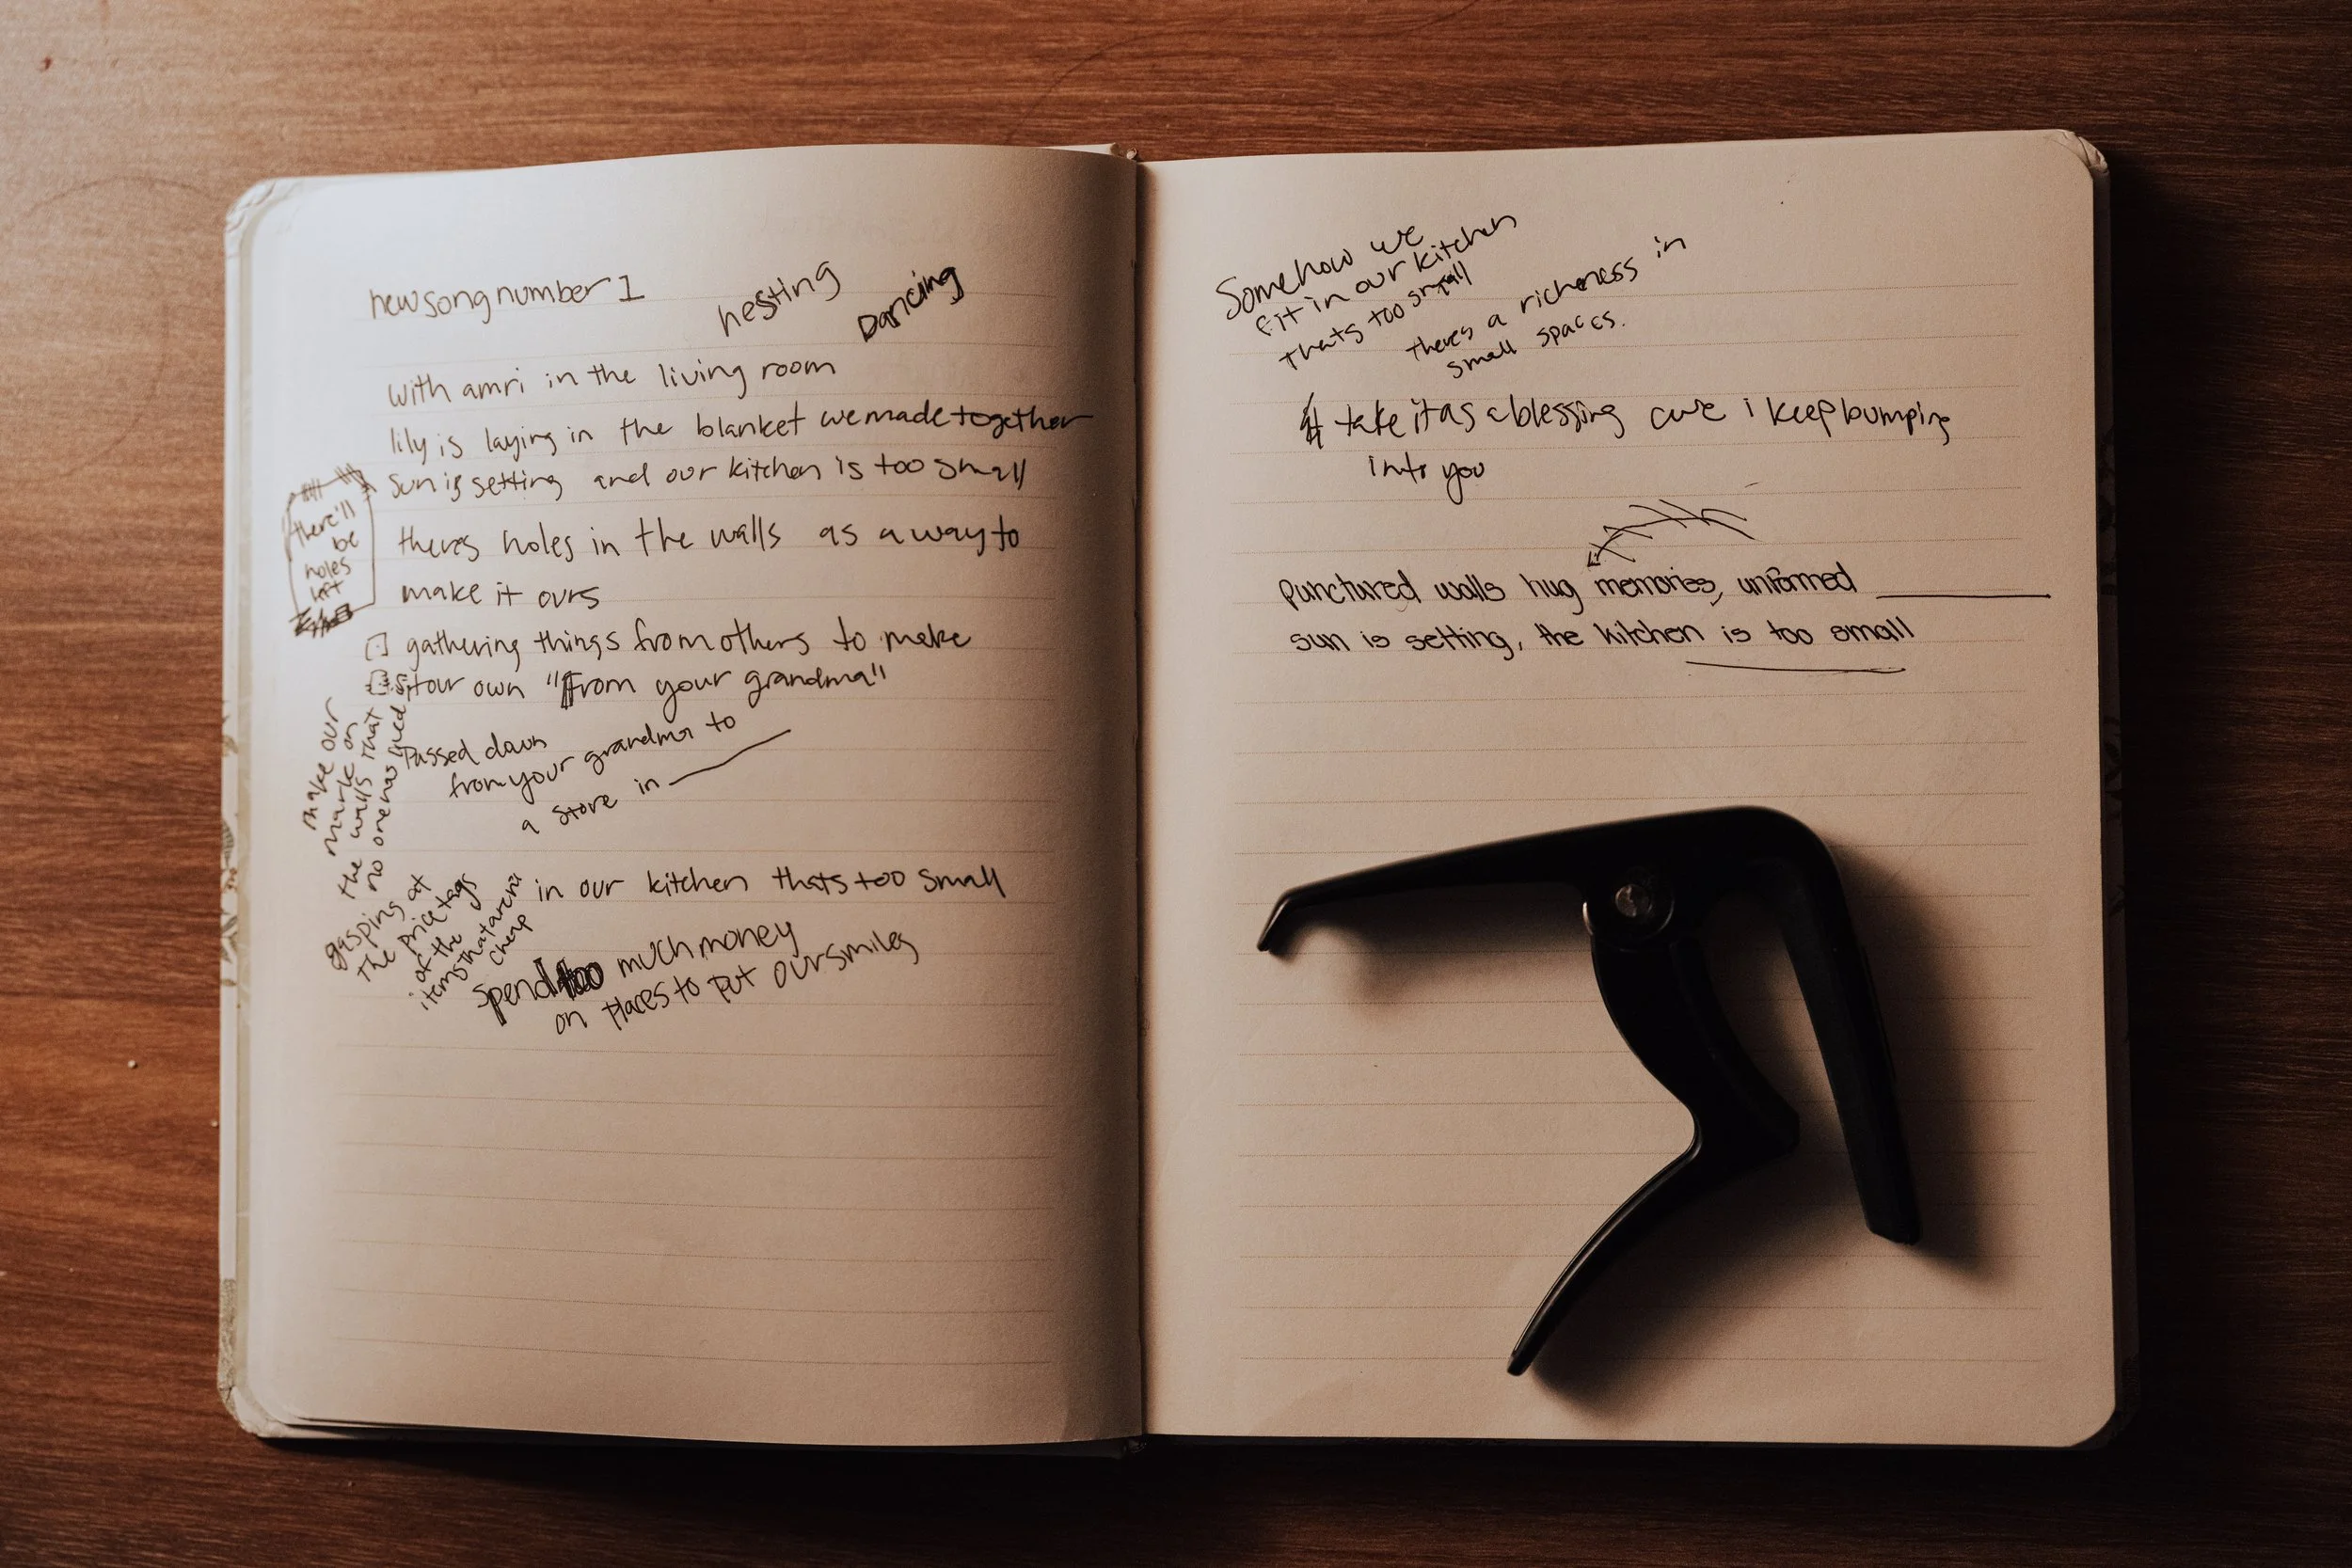 newsong number 1
nesting
Dancing
with amri in the living room
lily is laying in the blanket we made together
sun is setting and our kitchen is too small
there'll
be
holes
left
theres holes in the walls as a way to
make it ours
gathering things from others to make
our own "from your grandma"
Passed down
from your grandma to
a store in
make our
mark on
the walls that
no one has lived
in our kitchen thats too small
gasping at
the price tags
of the
items that arent
cheap
spend too much money
on places to put our smiles
Somehow we
fit in our kitchen
thats too small
theres a richeness in
small spaces.
take it as a blessing cuz i keep bumping
into you
punctured walls hug memories, unformed
sun is setting, the kitchen is too small